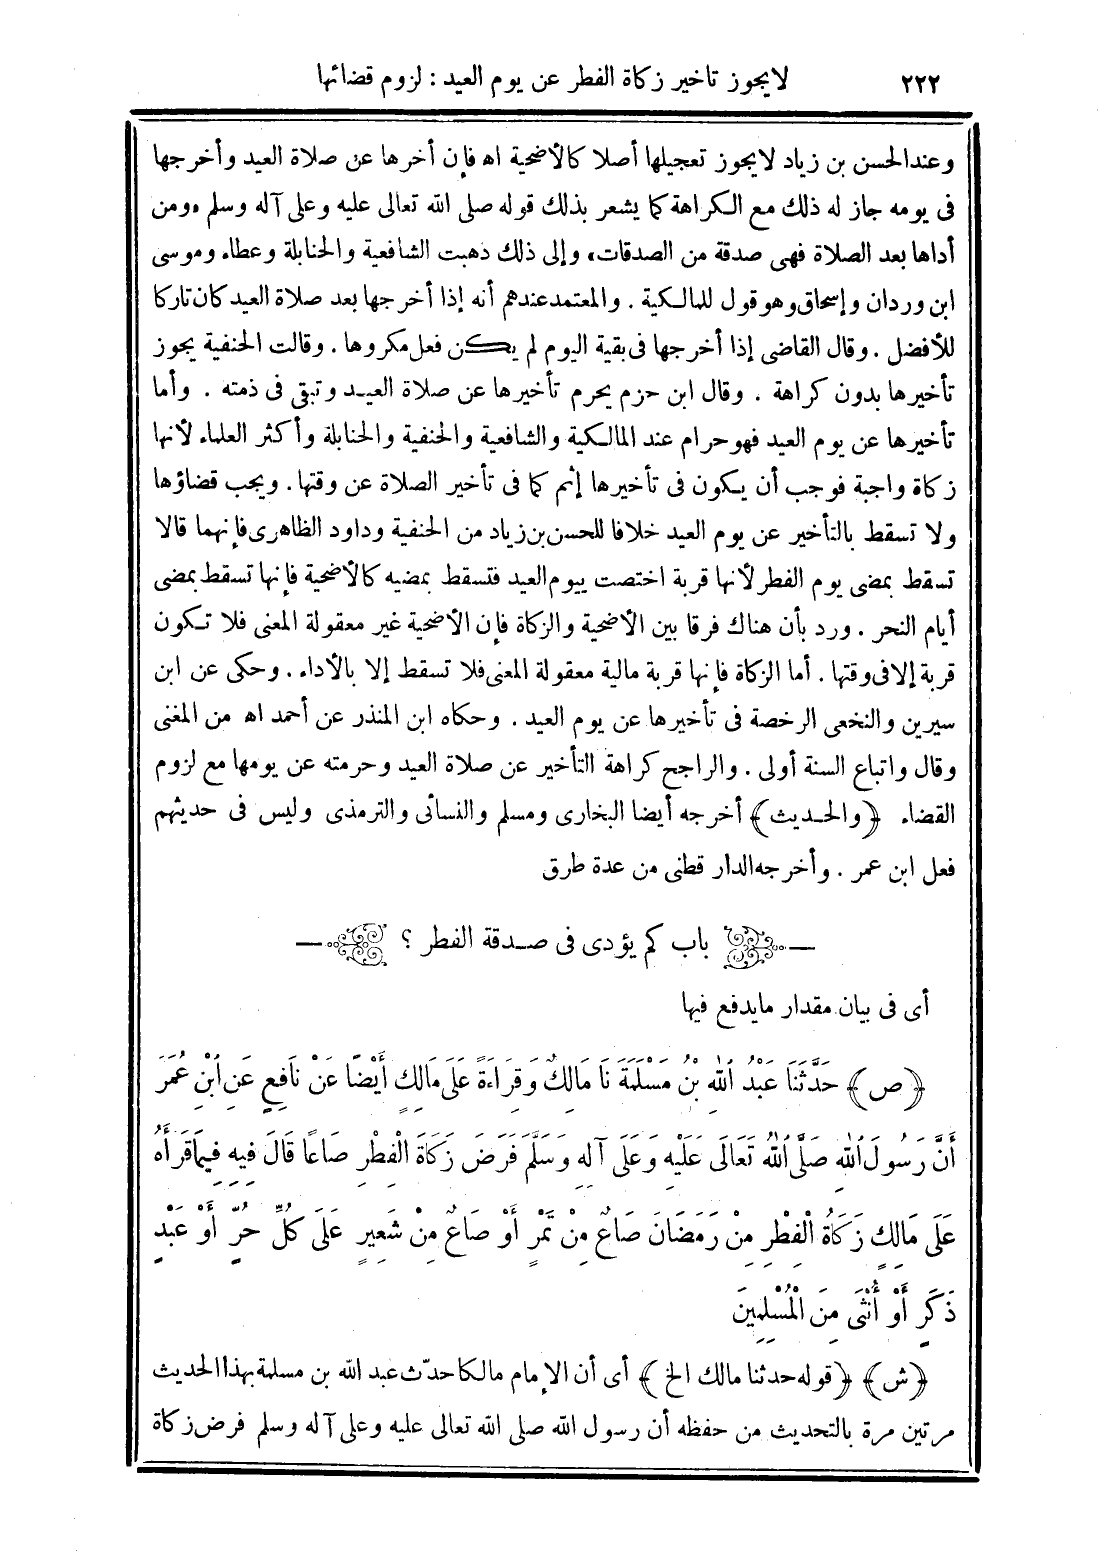 ٢٢٢ لايجوز تاخير زكاة الفطر عن يوم العيد : لزوم قضائها
وعندالحسن بن زياد لايجوز تعجيلها أصلا كالأضحية اه فإن أخرها عن صلاة العيد وأخرجها
فى يومه جاز له ذلك مع الكراهة كما يشعر بذلك قوله صلى الله تعالى عليه وعلى آله وسلم «ومن
أداها بعد الصلاة فهى صدقة من الصدقات» وإلى ذلك ذهبت الشافعية والحنابلة وعطاء وموسى
ابن وردان وإسحاق وهو قول للمالكية . والمعتمد عندهم أنه إذا أخرجها بعد صلاة العيد كان تاركا
للأفضل . وقال القاضى إذا أخرجها فى بقية اليوم لم يكن فعل مكروها . وقالت الحنفية يجوز
تأخيرها بدون كراهة . وقال ابن حزم يحرم تأخيرها عن صلاة العيد وتبقى فى ذمته . وأما
تأخيرها عن يوم العيد فهو حرام عند المالكية والشافعية والحنفية والحنابلة وأكثر العلماء لأنها
زكاة واجبة فوجب أن يكون فى تأخيرها إثم كما فى تأخير الصلاة عن وقتها . ويجب قضاؤها
ولا تسقط بالتأخير عن يوم العيد خلافا للحسن بن زياد من الحنفية وداود الظاهرى فإنهما قالا
تسقط بمضى يوم الفطر لأنها قربة اختصت بيوم العيد فتسقط بمضيه كالأضحية فإنها تسقط بمضى
أيام النحر . ورد بأن هناك فرقا بين الأضحية والزكاة فإن الأضحية غير معقولة المعنى فلا تكون
قربة إلا فى وقتها . أما الزكاة فإنها قربة مالية معقولة المعنى فلا تسقط إلا بالأداء . وحكى عن ابن
سيرين والنخعى الرخصة فى تأخيرها عن يوم العيد . وحكاه ابن المنذر عن أحمد اه من المغنى
وقال واتباع السنة أولى . والراجح كراهة التأخير عن صلاة العيد وحرمته عن يومها مع لزوم
القضاء ﴿والحديث﴾ أخرجه أيضا البخارى ومسلم والنسائى والترمذى وليس فى حديثهم
فعل ابن عمر . وأخرجه الدار قطنى من عدة طرق
باب كم يؤدى فى صدقة الفطر ؟
أى فى بيان مقدار مايدفع فيها
﴿ص﴾ حَدَّثَنَا عَبْدُ اللهِ بْنُ مَسْلَمَةَ نَا مَالِكٌ وَقِرَاءَةً عَلَى مَالِكٍ أَيْضًا عَنْ نَافِعٍ عَنِ ابْنِ عُمَرَ
أَنَّ رَسُولَ اللهِ صَلَّى اللهُ تَعَالَى عَلَيْهِ وَعَلَى آلِهِ وَسَلَّمَ فَرَضَ زَكَاةَ الْفِطْرِ صَاعًا قَالَ فِيهِ فِيمَا قَرَأَهُ
عَلَى مَالِكٍ زَكَاةُ الْفِطْرِ مِنْ رَمَضَانَ صَاعٌ مِنْ تَمْرٍ أَوْ صَاعٌ مِنْ شَعِيرٍ عَلَى كُلِّ حُرٍّ أَوْ عَبْدٍ
ذَكَرٍ أَوْ أُنْثَى مِنَ الْمُسْلِمِينَ
﴿ش﴾ ﴿قوله حدثنا مالك الخ﴾ أى أن الإمام مالكا حدّث عبد الله بن مسلمة بهذا الحديث
مرتين مرة بالتحديث من حفظه أن رسول الله صلى الله تعالى عليه وعلى آله وسلم فرض زكاة